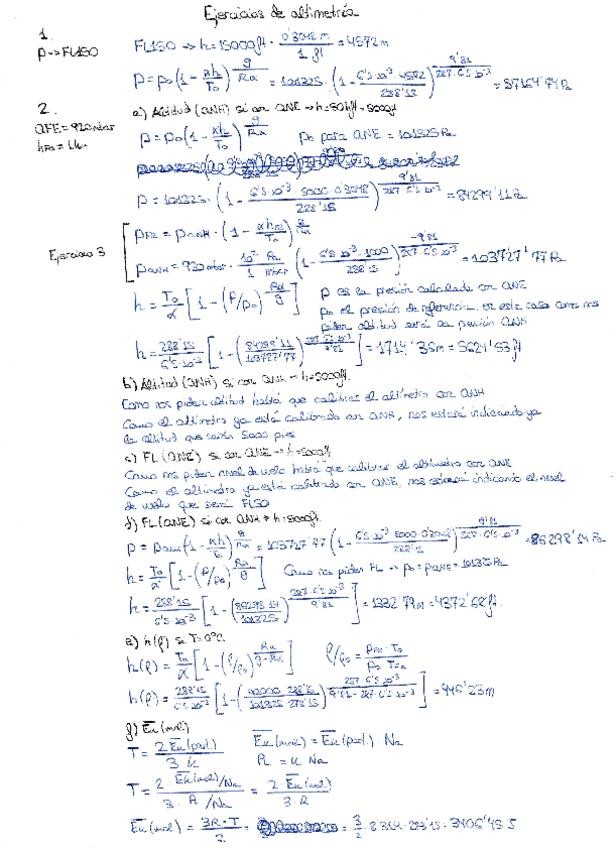 Ejercicios de altimetría
1.
p → FL150
FL150 → h = 15000 ft · 0'3048 m / 1 ft = 4572 m
p = p₀(1 - αh/T₀)^(g/Rα) = 101325 · (1 - 6'5·10⁻³ · 4572 / 288'15)^(9'81/287·6'5·10⁻³) = 57164'74 Pa
2.
QFE = 920 mbar
a) Altitud (QNH) si con QNE → h = 5000 ft
p = p₀(1 - αh/T₀)^(g/Rα) p₀ para QNE = 101325 Pa
p = 101325 · (1 - 6'5·10⁻³ · 5000 · 0'3048 / 288'15)^(9'81/287·6'5·10⁻³) = 84299'11 Pa
Ejercicio 3
= p_QNH · (1 - / T₀)^(g/Rα)
p_QNH = 920 mbar · 10² Pa / 1 mbar (1 - 6'5·10⁻³ · 1000 / 288'15)^(-9'81/287·6'5·10⁻³) = 103727'77 Pa
h = T₀/α [1 - (p/p₀)^(Rα/g)] p es la presión calculada con QNE
p₀ el presión de referencia, en este caso como nos
piden altitud será la presión QNH
h = 288'15 / 6'5·10⁻³ [1 - (84299'11 / 103727'77)^(287·6'5·10⁻³/9'81)] = 1714'35 m = 5624'53 ft
b) Altitud (QNH) si con QNH → h = 5000 ft.
Como nos piden altitud habrá que calibrar el altímetro con QNH
Como el altímetro ya está calibrado con QNH, nos estará indicando ya
la altitud que serán 5000 pies
c) FL (QNE) si con QNE → h = 5000 ft
Como nos piden nivel de vuelo habrá que calibrar el altímetro con QNE
Como el altímetro ya está calibrado con QNE, nos estará indicando el nivel
de vuelo que será FL50
d) FL (QNE) si con QNH → h = 5000 ft.
p = p_QNH(1 - αh/T₀)^(g/Rα) = 103727'77 (1 - 6'5·10⁻³ · 5000 · 0'3048 / 288'15)^(9'81/287·6'5·10⁻³) = 86298'14 Pa
h = T₀/α [1 - (p/p₀)^(Rα/g)] Como nos piden FL → p₀ = p_QNE = 101325 Pa
h = 288'15 / 6'5·10⁻³ [1 - (86298'14 / 101325)^(287·6'5·10⁻³/9'81)] = 1332'79 m = 4372'68 ft.
e) h(ρ) si T = 0°C.
h(ρ) = T₀/α [1 - (ρ/ρ₀)^(Rα/g-Rα)] ρ/ρ₀ =
h(ρ) = 288'15 / 6'5·10⁻³ [1 - (92000 · 288'15 / 101325 · )^(287·6'5·10⁻³ / 9'81-287·6'5·10⁻³)] = 446'23 m
f) Ek (mol)
T = 2 Ek (part.) / 3 k Ek (mol) = Ek (part.) Na
R = k Na
T = 2 Ek (mol)/Na / 3 · R/Na = 2 · Ek (mol) / 3 · R
Ek (mol) = 3R·T / 2 = 3/2 · 8'314 · 273'15 = 3406'45 J